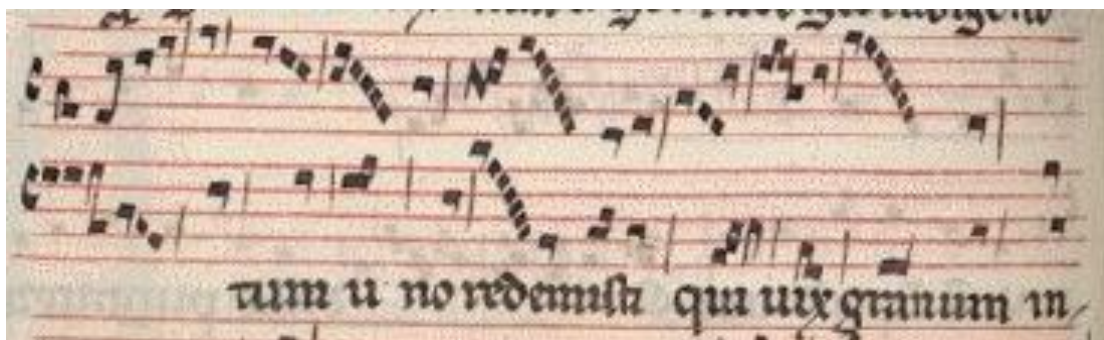 tum u no redemisti qui uix granum in